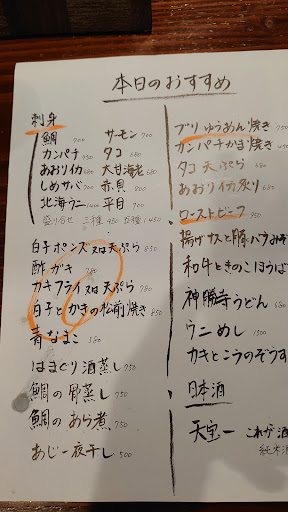 本日のおすすめ
刺身
鯛 700 サーモン 700
カンパチ 750 タコ 680
あおりイカ 680 大甘海老 680
しめサバ 700 赤貝
北海ウニ 1400 平目 700
盛り合せ 三種 950 五種 1450
白子ポンズ又は天ぷら 850
酢ガキ 780
カキフライ又は天ぷら 780
白子とかきの松前焼き 850
青なまこ 580
はまぐり酒蒸し 750
鯛の骨蒸し 750
鯛のあら煮 750
あじ一夜干し 500
ブリゆうあん焼き 750
カンパチかま焼き 750
タコ天ぷら 680
あおりイカ炙り 680
ローストビーフ 950
揚げナスと豚バラみそ
和牛ときのこほうば
神勝寺うどん 680
ウニめし 1500
カキときのこのぞうす
日本酒
天宝一 これが酒
純米酒